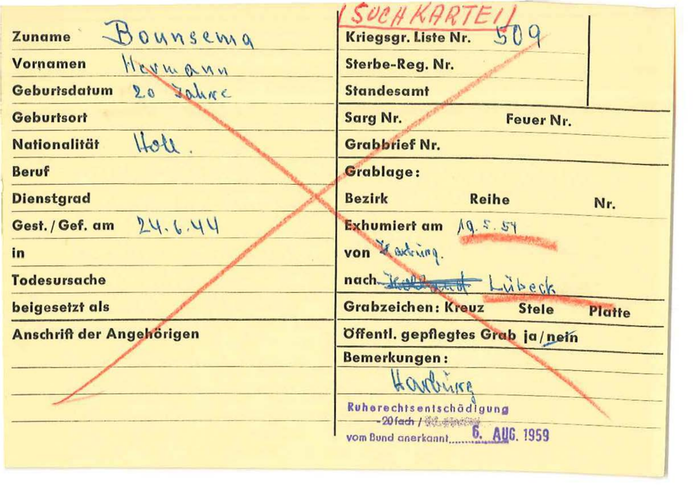 (SUCHKARTEI)
Zuname Bounsema
Vornamen Hermann
Geburtsdatum 20 Jahre
Geburtsort
Nationalität Holl.
Beruf
Dienstgrad
Gest./Gef. am 24.6.44
in
Todesursache
beigesetzt als
Anschrift der Angehörigen
Kriegsgr. Liste Nr. 509
Sterbe-Reg. Nr.
Standesamt
Sarg Nr. Feuer Nr.
Grabbrief Nr.
Grablage:
Bezirk Reihe Nr.
Exhumiert am 19.5.54
von Harburg.
nach Holland Lübeck
Grabzeichen: Kreuz Stele Platte
Öffentl. gepflegtes Grab ja/nein
Bemerkungen:
Harburg
Ruherechtsentschädigung
-20fach /
vom Bund anerkannt 6. AUG. 1959